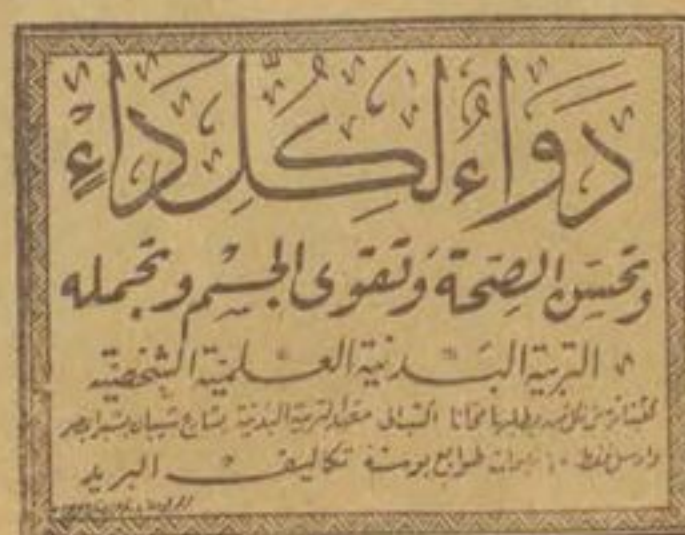 دَوَاءُ لِكُلِّ دَاءٍ
وتحسّن الصّحّة وَتقوى الجِسْم وتجمله
التربية البَدنية العلميّة الشخصيّة
مجانا اكتب الى معهد التربية البدنية بشارع شيبان بشبرا بمصر
وارسل فقط ١٠ مليمات طوابع بوستة تكاليف البريد